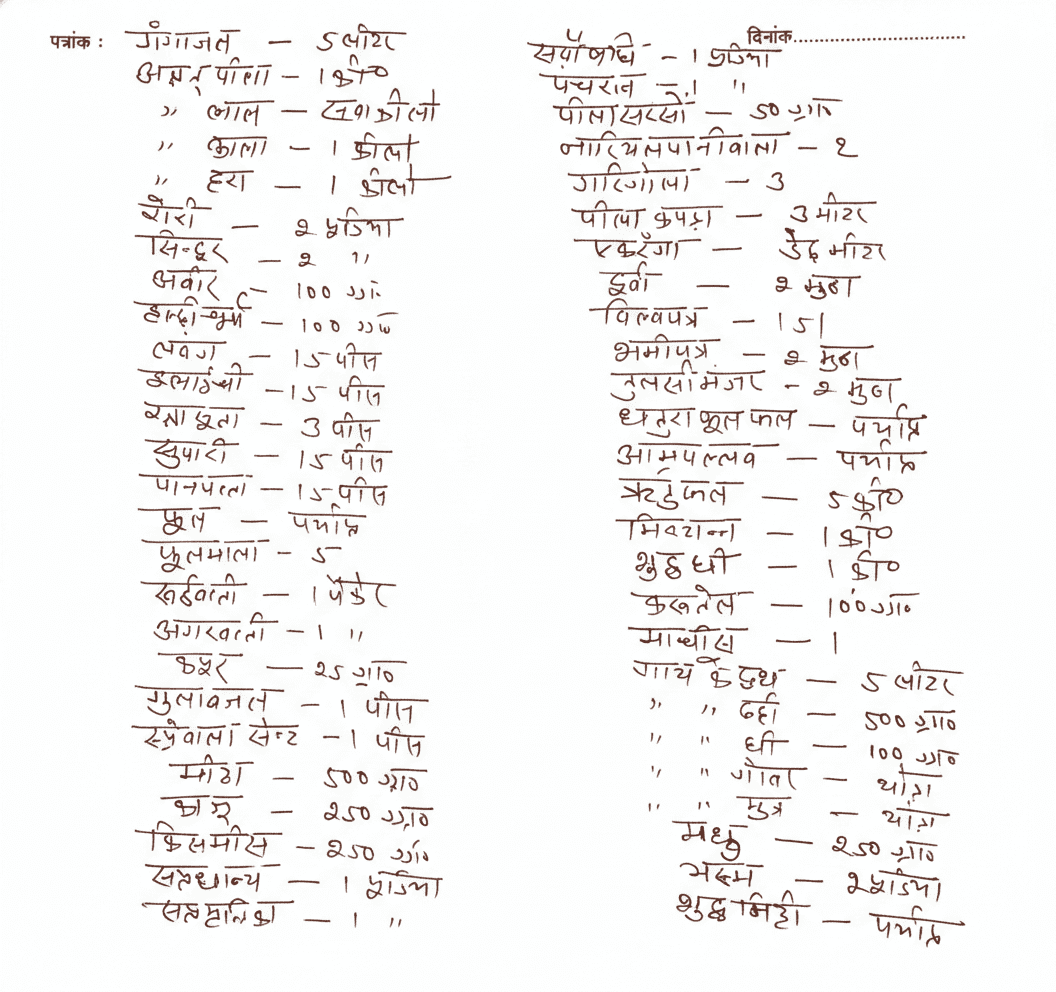 पत्रांक :
गंगाजल — 5 लीटर
अक्षत् पीला — 1 की०
" लाल — सवा कीलो
" काला — 1 कीलो
" हरा — 1 कीलो
रोरी — २ पुडिया
सिन्दुर — २ "
अवीर — 100 ग्रा०
हल्दी चूर्ण — 100 ग्रा०
लवंग — 15 पीस
इलाईची — 15 पीस
रक्षासूता — 3 पीस
सुपारी — 15 पीस
पानपत्ता — 15 पीस
फूल — पर्याप्त
फूलमाला — 5
रूईवाती — 1 पैकेट
अगरवत्ती — 1 "
कपूर — २5 ग्रा०
गुलावजल — 1 पीस
स्प्रेवाला सेन्ट — 1 पीस
मीठा — 500 ग्रा०
काजू — २50 ग्रा०
किसमीस — २50 ग्रा०
सप्तधान्य — 1 पुडिया
सप्तमृतिका — 1 "
दिनांक..........................................
सर्वौषधि — 1 पुडिया
पंचरत्न — 1 "
पीला सरसों — 50 ग्रा०
नारियल पानीवाला — २
गरिगोला — 3
पीला कपड़ा — 3 मीटर
एकरँगा — डेढ़ मीटर
दूर्वा — २ मुठा
विल्वपत्र — 151
शमीपत्र — २ मुठा
तुलसी मंजर — २ मुठा
धतुरा फूल फल — पर्याप्त
आमपल्लव — पर्याप्त
ऋर्तुफल — 5 की०
मिष्ठान्न — 1 की०
शुद्ध घी — 1 की०
करूतेल — 100 ग्रा०
माचीस — 1
गाय के दुध — 5 लीटर
" " दही — 500 ग्रा०
" " घी — 100 ग्रा०
" " गोवर — थोड़ा
" " मुत्र — थोड़ा
मधु — २50 ग्रा०
भस्म — २ पुडिया
शुद्ध मिट्टी — पर्याप्त